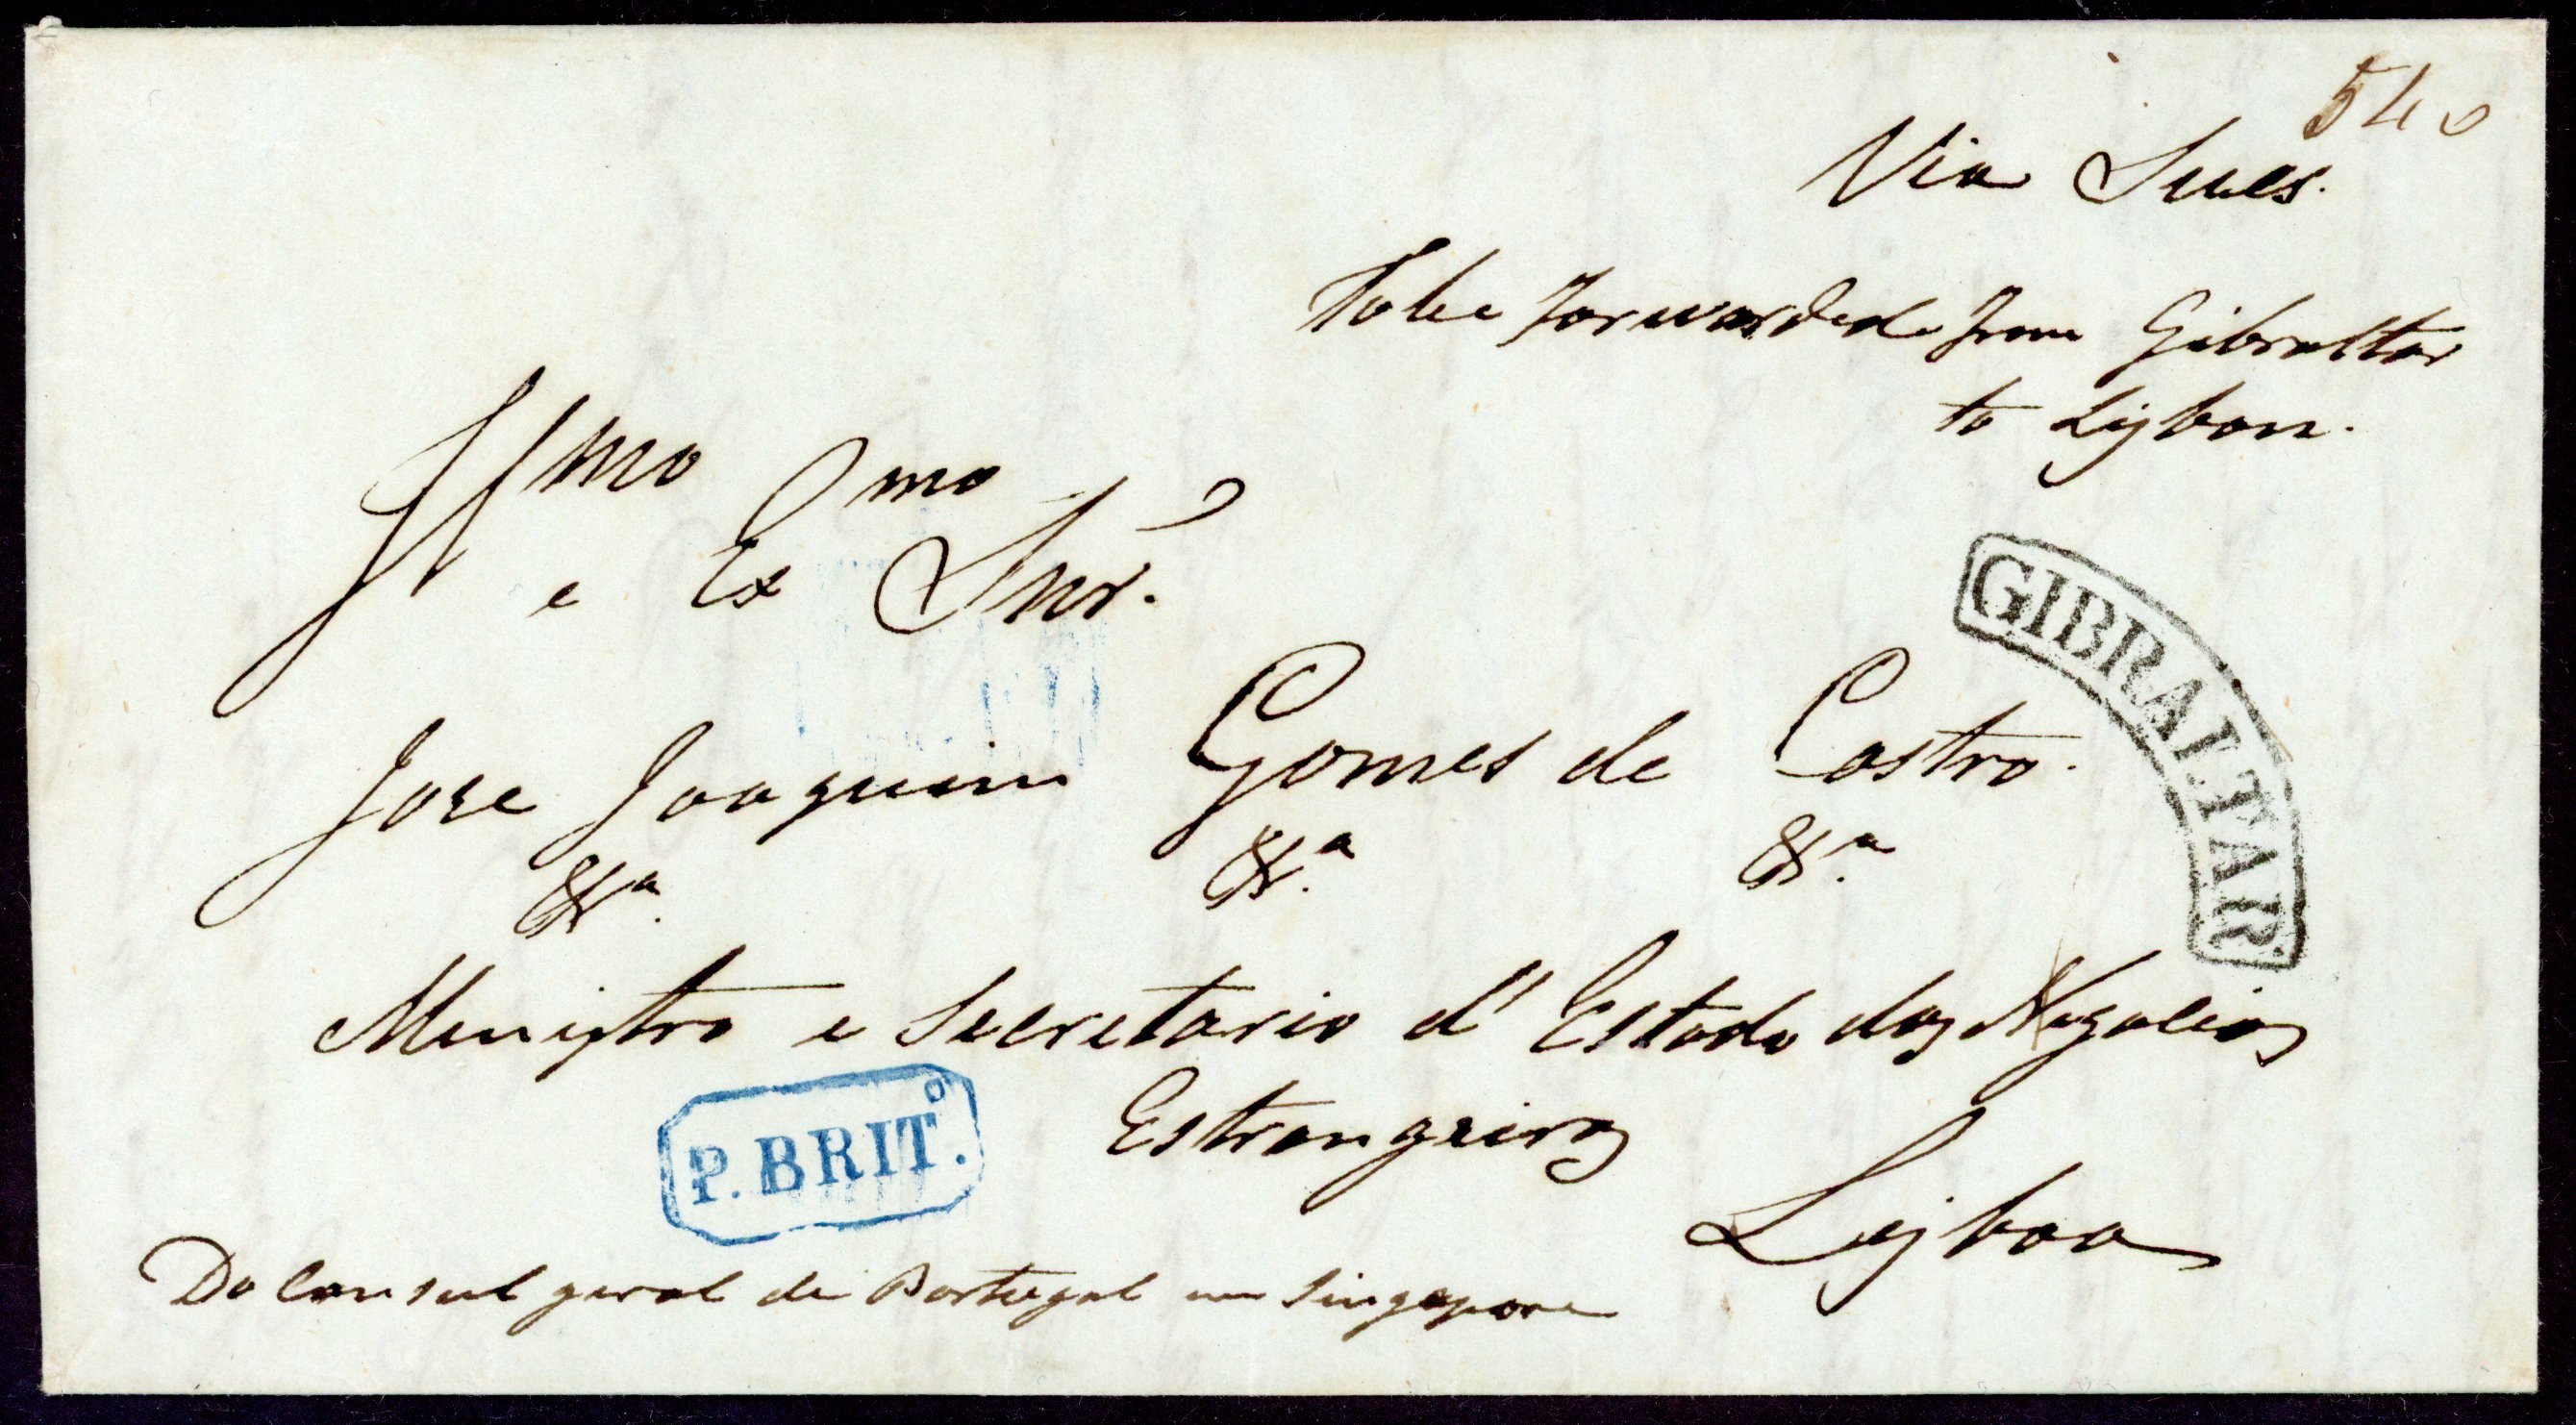 540
Via Sues.
To be forwarded from Gibraltar
to Lisbon.
Illmo e Exmo Snr.
GIBRALTAR
Jose Joaquim Gomes de Castro.
&a. &.a &.a
Ministro e Secretario d'Estado dos Negocios
Estrangeiros
P. BRITo.
Lisboa
Do Consul geral de Portugal em Singapore